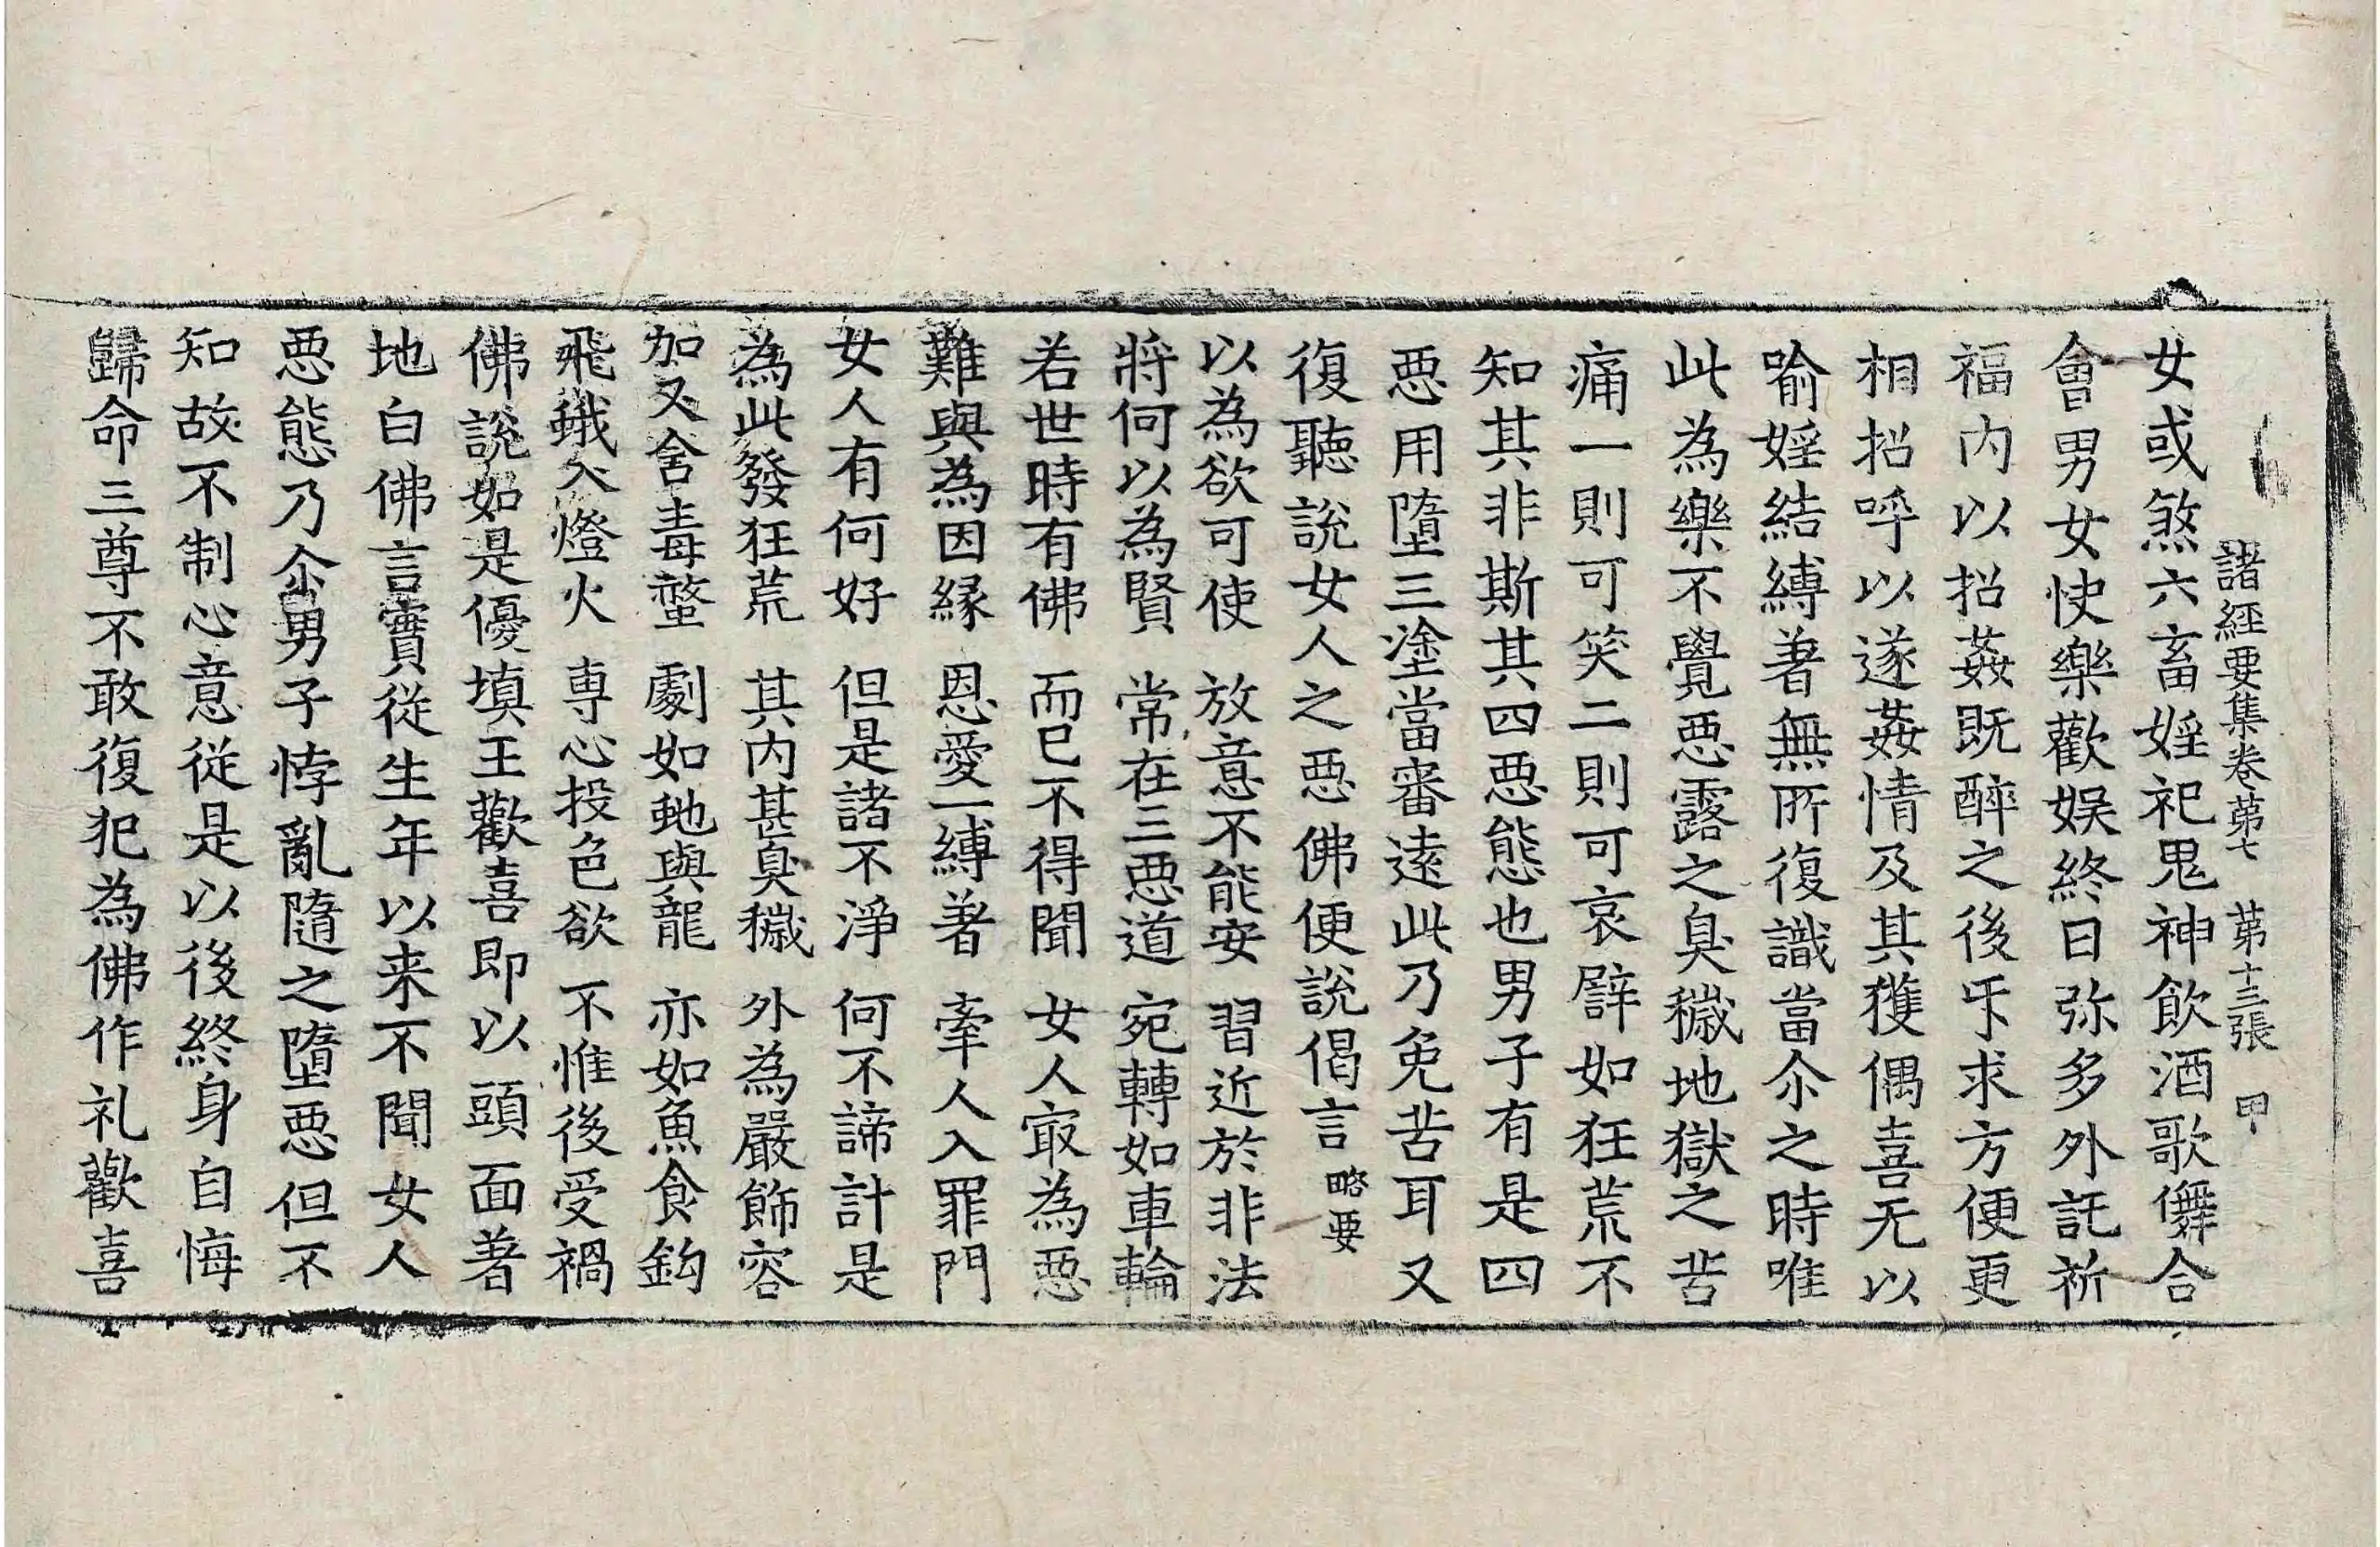 諸經要集卷苐七 苐十三張 甲
女或煞六畜婬祀鬼神飲酒歌儛合
會男女快樂歡娛終日弥多外託祈
福内以招姦既醉之後乎求方便更
相招呼以遂姦情及其獲偶喜无以
喻婬結縛著無所復識當尒之時唯
此為樂不覺惡露之臭穢地獄之苦
痛一則可笑二則可哀譬如狂荒不
知其非斯其四惡態也男子有是四
惡用墮三塗當審遠此乃免苦耳又
復聽說女人之惡佛便說偈言 略要
以為欲可使 放意不能安 習近於非法
將何以為賢 常在三惡道 宛轉如車輪
若世時有佛 而已不得聞 女人㝡為惡
難與為因緣 恩愛一縛著 牽人入罪門
女人有何好 但是諸不淨 何不諦計是
為此發狂荒 其内甚臭穢 外為嚴飾容
加又含毒螫 劇如虵與龍 亦如魚食鈎
飛蛾入燈火 専心投色欲 不惟後受禍
佛說如是優填王歡喜即以頭面著
地白佛言實從生年以来不聞女人
惡態乃尒男子悖亂隨之墮惡但不
知故不制心意從是以後終身自悔
歸命三尊不敢復犯為佛作礼歡喜